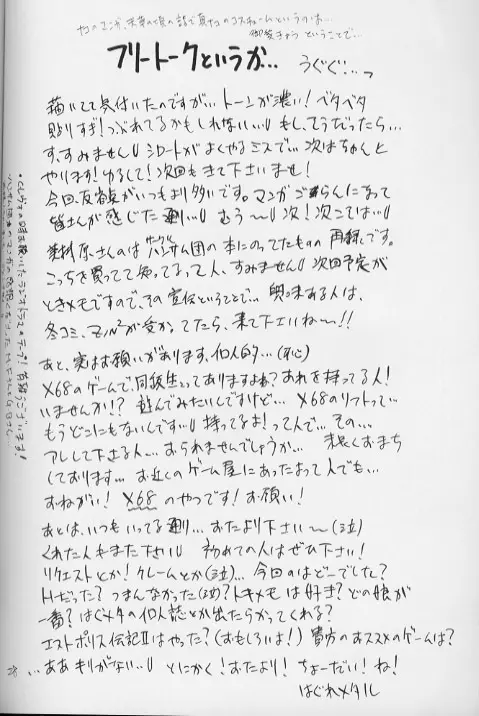 フリートークというか… うぐぐ…
描いてて気付いたのですが… トーンが濃い! ベタベタ
貼りすぎ! つぶれてるかもしれない… もし、そうだったら…
す、すみません シロートがよくやるミスで… 次はちゃんと
やります! ゆるして! 次回もきて下さいませ!
今回、反省点がいつもより多いです。マンガ ごらんになって
皆さんが感じた通り… むぅ〜 次! 次こそは…
さんのは ハンサム団の本にのってたものの 再録です。
こっちを買ってて知ってるって人、すみません 次回予定が
ときメモですので、その宣伝ということで… 興味ある人は、
冬コミ、 が受かってたら、来て下さいね〜!!
あと、実はお願いがあります、個人的…(心)
X68のゲームで、同級生ってありますよね? あれを持ってる人!
いませんか!? 遊んでみたいんですけど… X68のソフトって…
もうどこにもないんです… 持ってるよ! って人で… その…
アレして下さる人… おられませんでしょうか… 末長くおまち
しております… お近くのゲーム屋にあったよって人でも…
おねがい! X68 のやつです! お願い!
あとは、いつもいってる通り… おたより下さい〜 (泣)
くれた人もまた下さい 初めての人はぜひ下さい!
リクエストとか! クレームとか(泣)… 今回のはどーでした?
Hだった? つまんなかった(泣)? トキメモは好き? どの娘が
一番? はぐメタの個人誌とか出たらかってくれる?
エストポリス伝記IIはやった? (おもしろいよ!) 貴方のおススメのゲームは?
…ああ キリがない… とにかく! おたより! ちょーだい! ね!
はぐれメタル